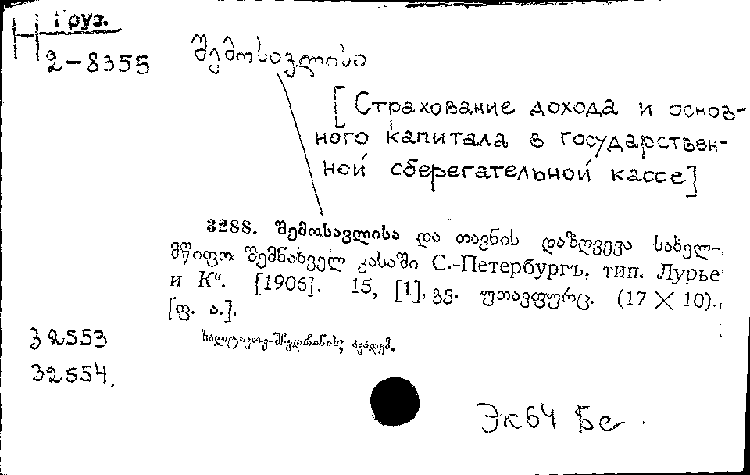 Груз.
Н 2-8355
შემოსავლისა
[Страхование дохода и основ-
ного капитала в государствен-
ной сберегательной кассе]
3288. შემოსავლისა და თავნის დაზღვევა სახელ-
მწიფო შემნახველ კასაში С.-Петербургъ, тип. Лурье
и К°. [1906]. 15, [1], გვ. უთავფურც. (17 X 10).
[ფ. ა.].
32553
32554.
Эк64 Бе